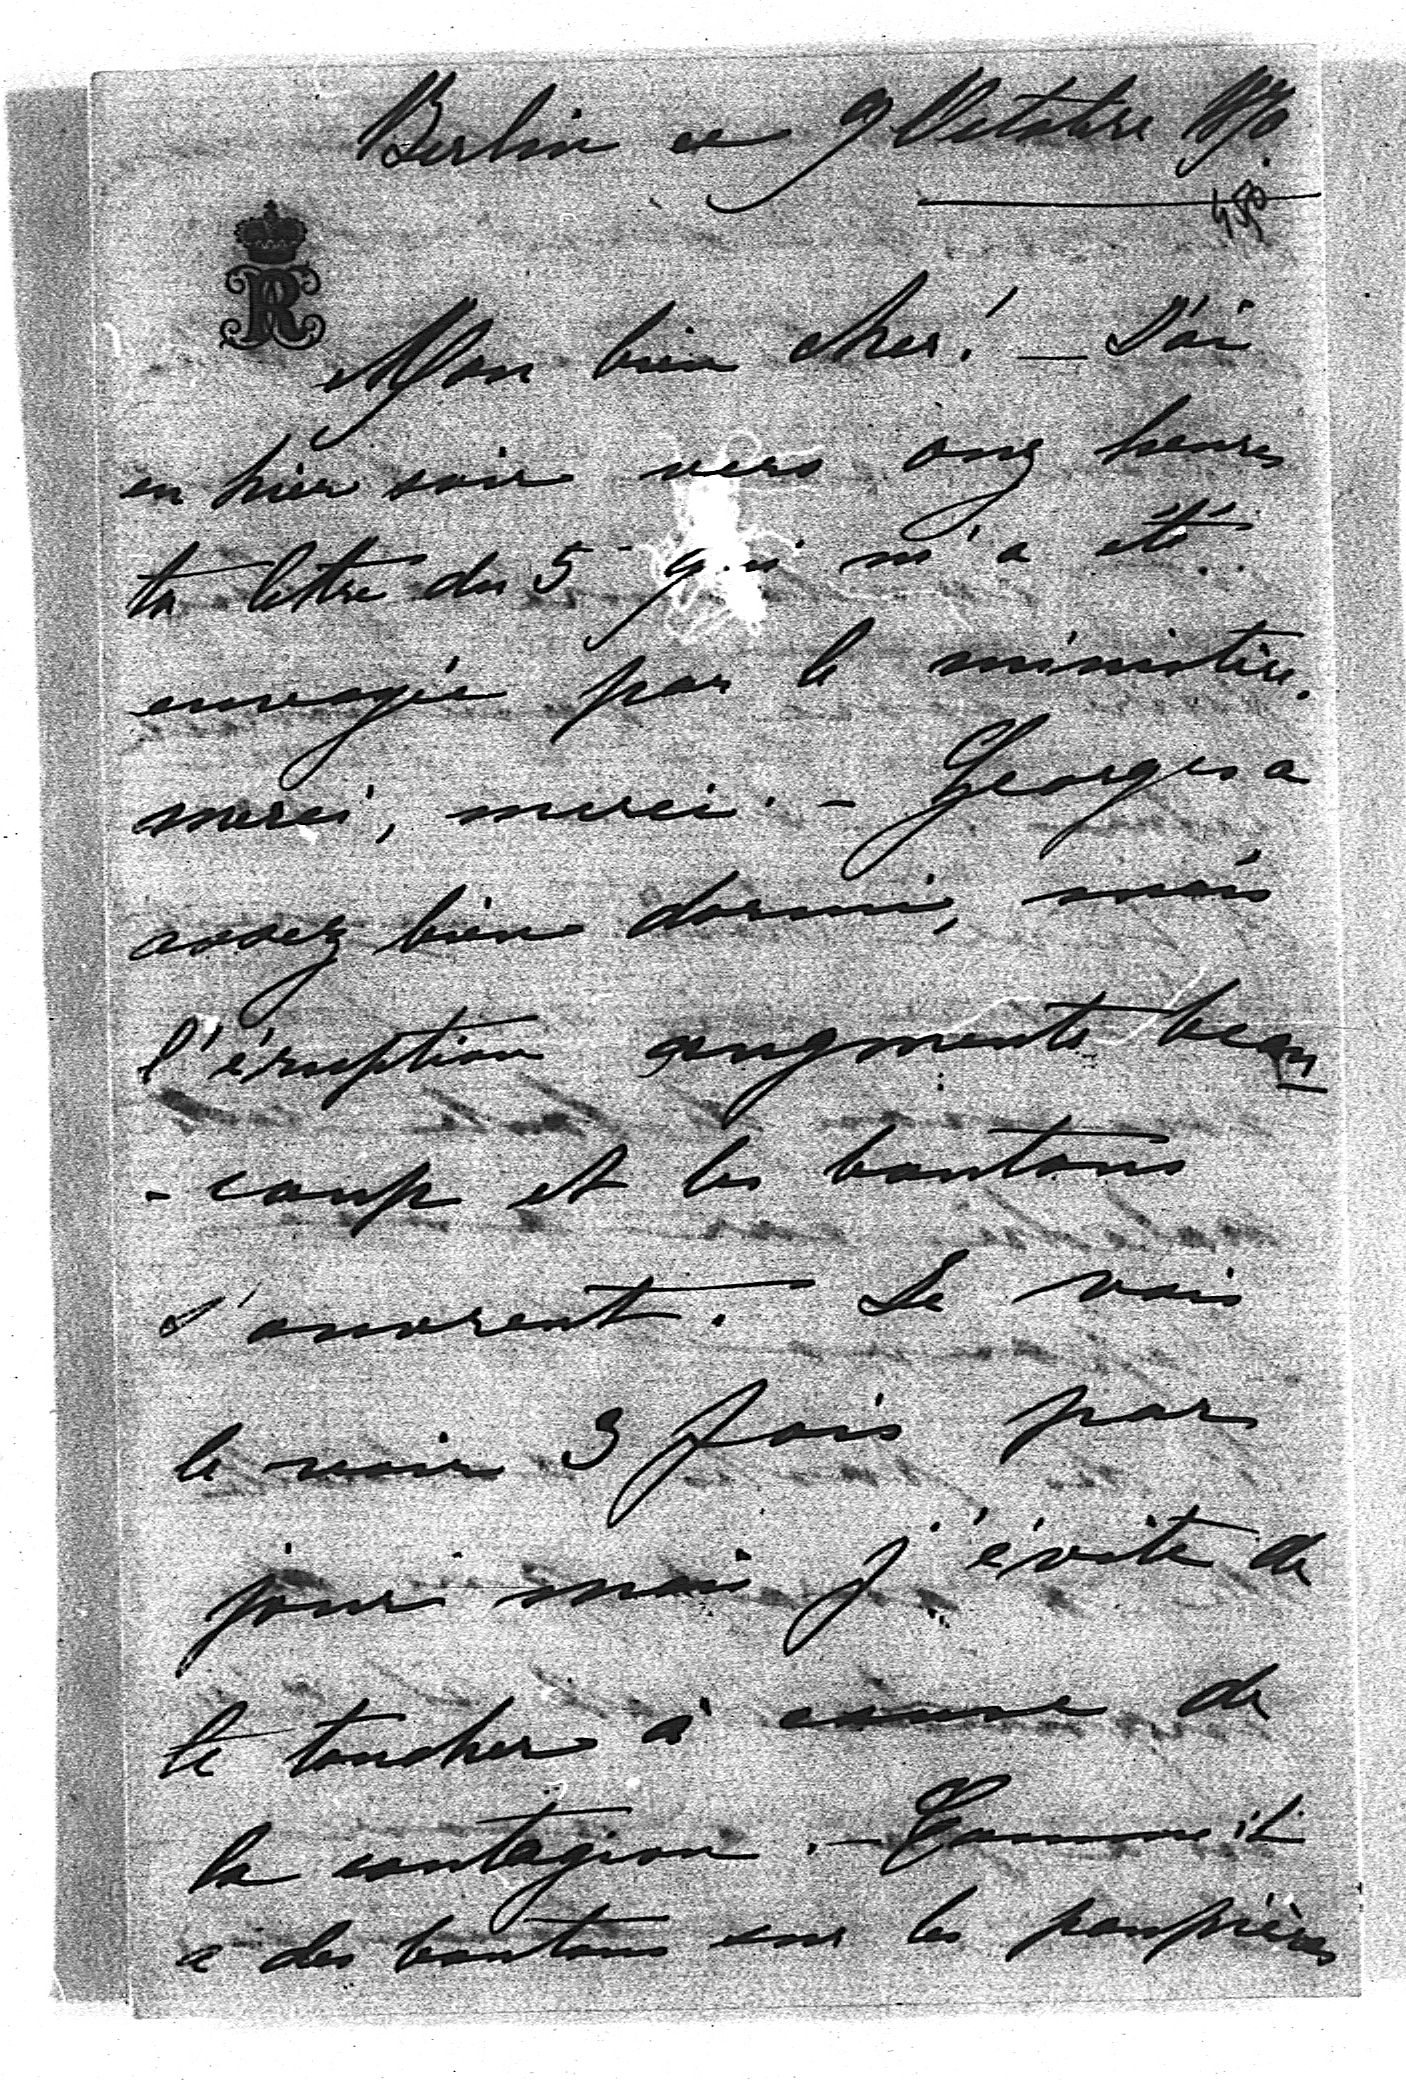 Berlin ce 9 Octobre 1870.
R
Mon bien cher! — J'ai
eu hier soir vers onz heures
ta lettre du 5 qui m'a été
envoyée par le ministère.
merci, merci. — Georges a
assez bien dormi, mais
l'éruption augmente beau
- coup et les boutons
s'ouvrent. Je vais
le voir 3 fois par
jour mais j'évite de
le toucher à cause de
la contagion. — Comme il
a des boutons sur les paupières